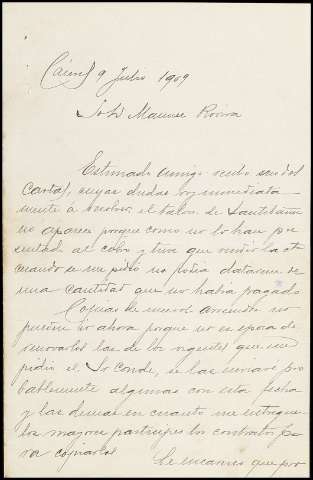 Cáceres 9 Julio 1909
Sr D Manuel Rovira
Estimado amigo recibo sus dos
cartas, cuyas dudas voy inmediata
mente á resolver, el talon de Santibañez
no aparece porque como no lo han pre
sentado al cobro y tuve que rendir la cta
cuando se me pidió no podia datarme de
una cantidad que no habia pagado
Copias de nuevos arriendos no
puedo ahora porque no es epoca de
renovarlos las de los vigentes que me
pidio el Sr Conde, se las enviaré pro
bablemente algunas con esta fecha
y las demas en cuanto me entreguen
los mayores participes los contratos pa
ra copiarlos
Le encarezco que por